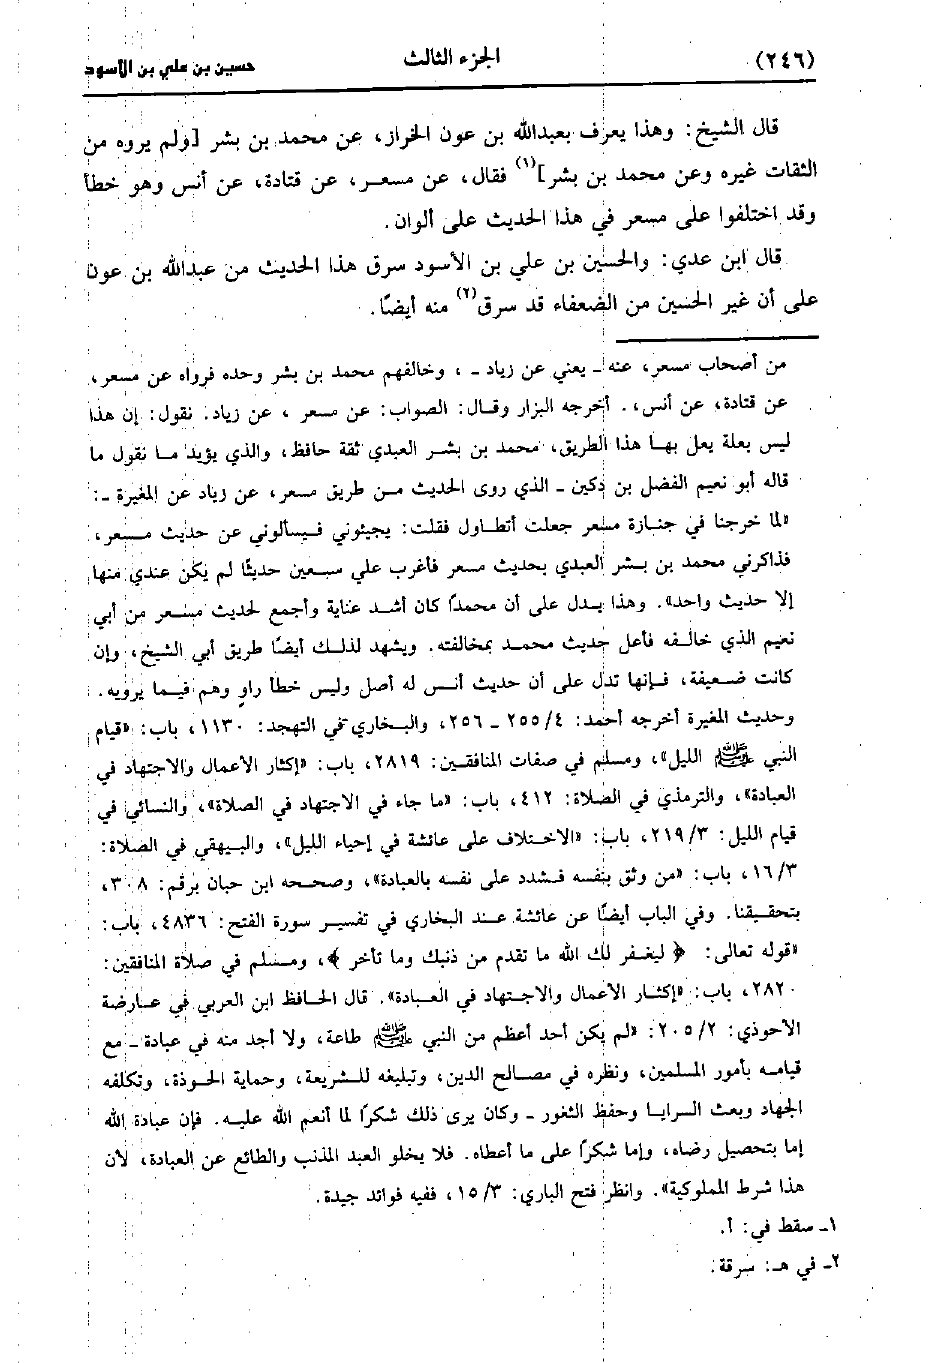 (٢٤٦) الجزء الثالث حسين بن علي بن الأسود
قال الشيخ: وهذا يعرف بعبدالله بن عون الخراز، عن محمد بن بشر [ولم يروه من
الثقات غيره وعن محمد بن بشر](١) فقال، عن مسعر، عن قتادة، عن أنس وهو خطأ
وقد اختلفوا على مسعر في هذا الحديث على ألوان.
قال ابن عدي: والحسين بن علي بن الأسود سرق هذا الحديث من عبدالله بن عون
على أن غير الحسين من الضعفاء قد سرق(٢) منه أيضًا.
من أصحاب مسعر، عنه ـ يعني عن زياد ـ ، وخالفهم محمد بن بشر وحده فرواه عن مسعر،
عن قتادة، عن أنس،. أخرجه البزار وقال: الصواب: عن مسعر ، عن زياد. نقول: إن هذا
ليس بعلة يعل بها هذا الطريق، محمد بن بشر العبدي ثقة حافظ، والذي يؤيد ما نقول ما
قاله أبو نعيم الفضل بن دكين ـ الذي روى الحديث من طريق مسعر، عن زياد عن المغيرة ـ:
«لما خرجنا في جنازة مسعر جعلت أتطاول فقلت: يجيئوني فيسألوني عن حديث مسعر،
فذاكرني محمد بن بشر العبدي بحديث مسعر فأغرب علي سبعين حديثًا لم يكن عندي منها
إلا حديث واحد». وهذا يدل على أن محمدًا كان أشد عناية وأجمع لحديث مسعر من أبي
نعيم الذي خالفه فأعل حديث محمد بمخالفته. ويشهد لذلك أيضًا طريق أبي الشيخ، وإن
كانت ضعيفة، فإنها تدل على أن حديث أنس له أصل وليس خطأ راوٍ وهم فيما يرويه.
وحديث المغيرة أخرجه أحمد: ٢٥٥/٤ ـ ٢٥٦، والبخاري في التهجد: ١١٣٠، باب: «قيام
النبي ﷺ الليل»، ومسلم في صفات المنافقين: ٢٨١٩، باب: «إكثار الأعمال والاجتهاد في
العبادة»، والترمذي في الصلاة: ٤١٢، باب: «ما جاء في الاجتهاد في الصلاة»، والنسائي في
قيام الليل: ٢١٩/٣، باب: «الاختلاف على عائشة في إحياء الليل»، والبيهقي في الصلاة:
١٦/٣، باب: «من وثق بنفسه فشدد على نفسه بالعبادة»، وصححه ابن حبان برقم: ٣٠٨،
بتحقيقنا. وفي الباب أيضًا عن عائشة عند البخاري في تفسير سورة الفتح: ٤٨٣٦، باب:
«قوله تعالى: ﴿ ليغفر لك الله ما تقدم من ذنبك وما تأخر ﴾، ومسلم في صلاة المنافقين:
٢٨٢٠، باب: «إكثار الأعمال والاجتهاد في العبادة». قال الحافظ ابن العربي في عارضة
الأحوذي: ٢٠٥/٢: «لم يكن أحد أعظم من النبي ﷺ طاعة، ولا أجد منه في عبادة ـ مع
قيامه بأمور المسلمين، ونظره في مصالح الدين، وتبليغه للشريعة، وحماية الحوذة، وتكلفه
الجهاد وبعث السرايا وحفظ الثغور ـ وكان يرى ذلك شكرًا لما أنعم الله عليه. فإن عبادة الله
إما بتحصيل رضاه، وإما شكرًا على ما أعطاه. فلا يخلو العبد المذنب والطائع عن العبادة، لأن
هذا شرط المملوكية». وانظر فتح الباري: ١٥/٣، ففيه فوائد جيدة.
١ـ سقط في: أ.
٢ـ في هـ: سرقة.